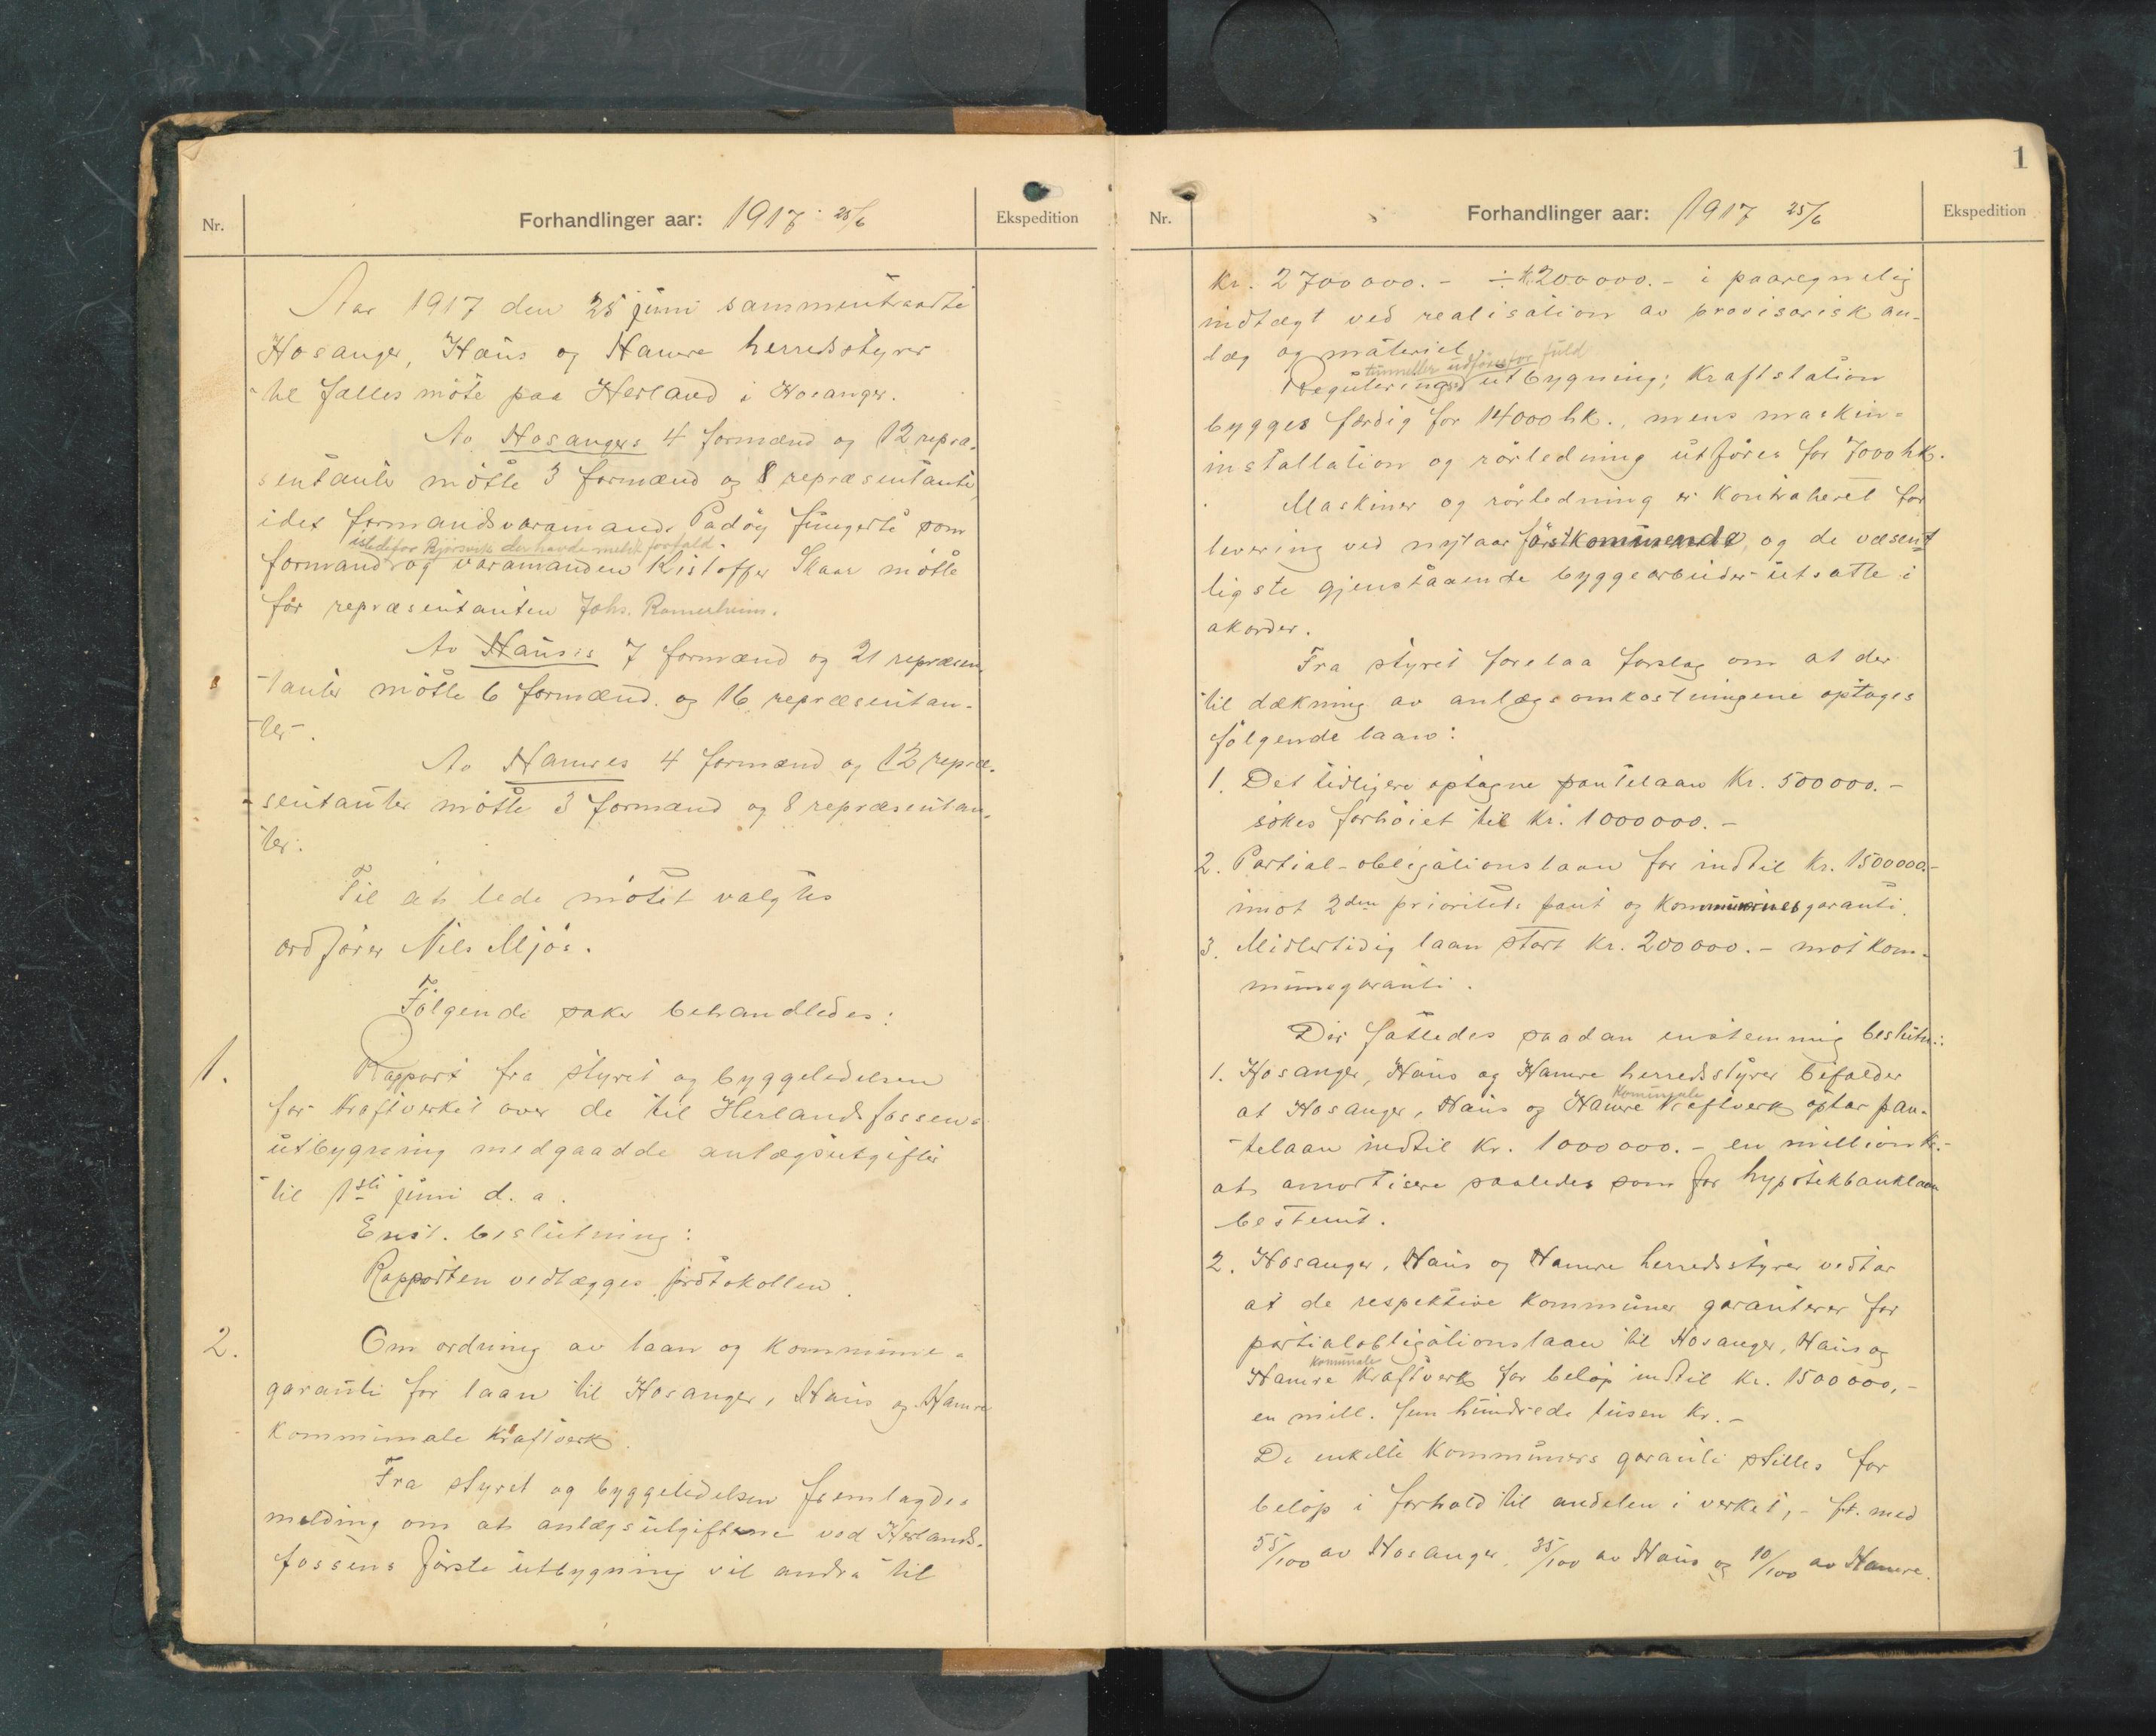 Nr.
Forhandlinger aar: 1917 25/6
Ekspedition
Aar 1917 den 25 juni sammentraadte
Hosanger, Haus og Hamre herredsstyrer
til fælles møte paa Herland i Hosanger.
Av Hosangers 4 formænd og 12 repræ-
sentanter møtte 3 formænd og 8 repræsentanter
idet formandsvaramand Padøy fungerte som
istedefor Bjørsvik der havde meldt forfald
formand og varamanden Kristoffer Skaar møtte
for repræsentanten Johs. Romerheim.
Av Hauses 7 formænd og 21 repræsen-
tanter møtte 6 formænd og 16 repræsentan-
ter.
Av Hamres 4 formænd og 12 repræ-
sentanter møtte 3 formænd og 8 repræsentan-
ter.
Til at lede møtet valgtes
ordfører Nils Mjøs.
Følgende saker behandledes:
1. Rapport fra styret og byggeledelsen
for kraftverket over de til Herlandsfossens
utbygning medgaadde anlægsutgifter
til 1ste juni d. a.
Enst. beslutning:
Rapporten vedlægges protokollen.
2. Om ordning av laan og kommune-
garanti for laan til Hosanger, Haus og Hamre
kommunale kraftverk.
Fra styret og byggeledelsen fremlagdes
melding om at anlægsutgiftene ved Herlands-
fossens første utbygning vil andra til
1
Nr.
Forhandlinger aar: 1917 25/6
Ekspedition
kr. 2700000.- ÷ kr. 200000.- i paaregnelig
indtægt ved realisation av provisorisk an-
læg og materiel.
tunneller utføres for fuld
Regulering utbygning; kraftstation
bygges færdig for 14000 hk., mens maskin-
installation og rørledning utføres for 7000 hk.
Maskiner og rørledning er kontrahert for
levering ved nytaar førstkommende, og de væsent
ligste gjenstaaende byggearbeider utsatte i
akorder.
Fra styret forelaa forslag om at der
til dækning av anlægsomkostningene optages
følgende laan:
1. Det tidligere optagne pantelaan Kr. 500000.-
søkes forhøiet til kr. 1000000.-
2. Partial-obligationslaan for indtil kr. 1500000.-
imot 2den prioritets pant og kommunernes garanti.
3. Midlertidig laan stort kr. 200000.- mot kom-
munegaranti.
Der fattedes saadan enstemmig beslutn.:
1. Hosanger, Haus og Hamre herredsstyrer bifalder
kommunale
at Hosanger, Haus og Hamre kraftverk optar pan-
telaan indtil kr. 1000000.- en million kr.-
at amortisere saaledes som for hypotekbanklaan
bestemt.
2. Hosanger, Haus og Hamre herredsstyrer vedtar
at de respektive kommuner garanterer for
partialobligationslaan til Hosanger, Haus og
komunale
Hamre kraftverk for beløp indtil kr. 1500000,-
en mill. fem hundrede tusen kr.-
De enkelte kommuners garanti stilles for
beløp i forhold til andelen i verket,- ft. med
55/100 av Hosanger, 35/100 av Haus og 10/100 av Hamre.